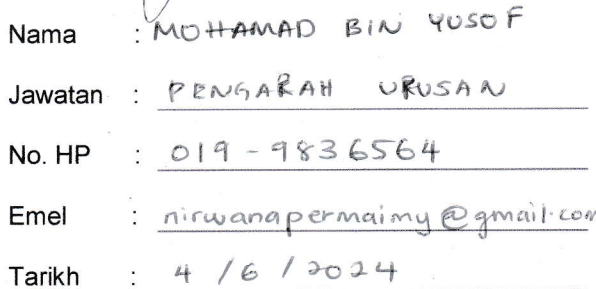 Nama : MOHAMAD BIN YUSOF
Jawatan : PENGARAH URUSAN
No. HP : 019-9836564
Emel : nirwanapermaimy@gmail.com
Tarikh : 4/6/2024